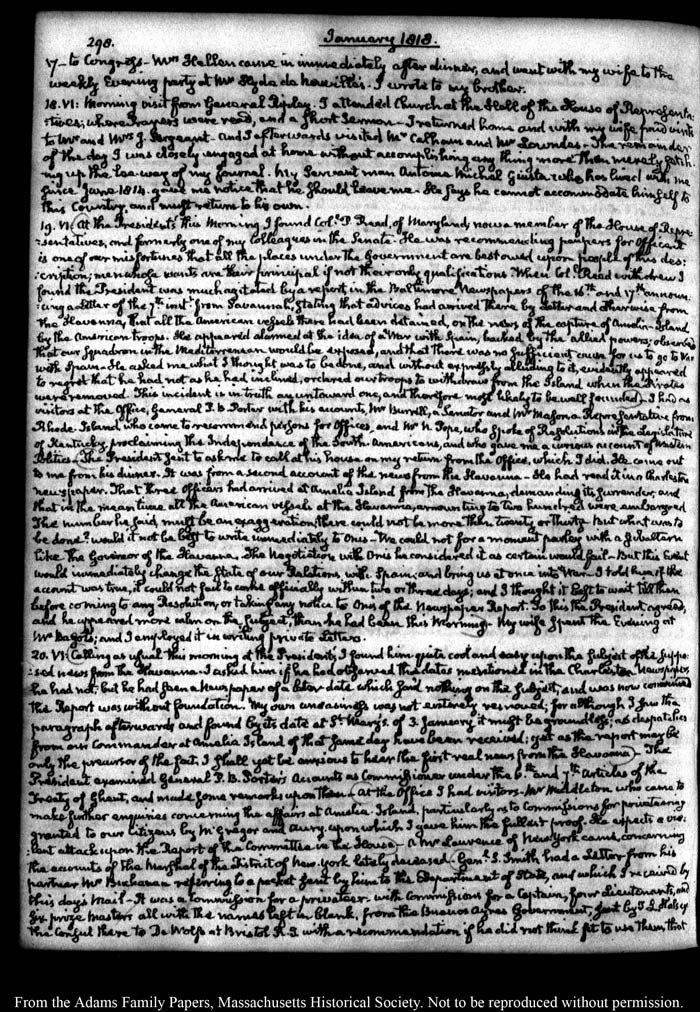 298. January 1818.
17 – to Congress – Mrs Hellen came in immediately after dinner, and went with my wife to the
weekly Evening party at Mr Hyde de Neuville's. I wrote to my brother.
18. VI: Morning visit from General Ripley. I attended Church at the Hall of the House of Representa-
tives; where Prayers were read, and a short Sermon – I returned home and with my wife paid visits
to Mr and Mrs J. Sergeant – and I afterwards visited Mr Calhoun and Mr Lowndes – The remainder
of the day I was closely engaged at home without accomplishing any thing more than merely fetch-
ing up the lee-way of my Journal. My Servant man Antoine Michel Giusta who has lived with me
since June 1814. gave me notice that he should leave me. He says he cannot accommodate himself to
this Country, and must return to his own.
19. VI. At the President's this Morning I found Coll. P. Reed, of Maryland, now a member of the House of Repre-
:sentatives, and formerly one of my Colleagues in the Senate. He was recommending paupers for Office. It
is one of our misfortunes that all the places under the Government are bestowed upon people of this des:
:cription; men whose wants are their principal if not their only qualifications. When Coll. Reed withdrew I
found the President was much agitated by a report, in the Baltimore Newspapers of the 16th and 17th announ-
:cing a Letter of the 7th inst. from Savannah, stating that advices had arrived there by Letter and otherwise from
the Havanna, that all the American vessels there had been detained, on the news of the capture of Amelia-Island
by the American troops. He appeared alarmed at the idea of a War with Spain, backed by the allied powers; observed
that our Squadron in the Mediterranean would be exposed, and that there was no sufficient cause for us to go to War
with Spain. He asked me what I thought was to be done, and without expressly alluding to it, evidently appeared
to regret that he had not as he had inclined, ordered our troops to withdraw from the Island when the Pirates
were removed. This incident is in truth an untoward one, and therefore most likely to be well founded. I had as
visitors at the Office, General P. B. Porter with his accounts, Mr Burrill, a Senator and Mr Mason a Representative from
Rhode Island who came to recommend persons for Offices, and Mr N. Pope, who spoke of Resolutions in the Legislature
of Kentucky, proclaiming the Independence of the South-Americans, and who gave me a curious account of Western
Politics. The President sent to ask me to call at his house on my return from the Office, which I did. He came out
to me from his dinner. It was from a second account of the news from the Havanna – He had read it in a Charleston
newspaper. That three Officers had arrived at Amelia Island from the Havanna, demanding its surrender, and
that in the mean time all the American vessels at the Havanna, amounting to two hundred were embargoed
The number he said must be an exaggeration; there could not be more than twenty or thirty – But what was to
be done? would it not be best to write immediately to Onis – We could not for a moment parley with a subaltern
like the Governor of the Havanna. The Negotiation with Onis he considered it as certain would fail – But this Event
would immediately change the State of our Relations with Spain; and bring us at once into War – I told him if the
account was true, it could not fail to come officially within two or three days; and I thought it best to wait till then
before coming to any Resolution, or taking any notice to Onis of the Newspaper Report. To this the President agreed,
and he appeared more calm on the subject, than he had been this Morning. My wife spent the Evening at
Mr Bagot's; and I employed it in writing private Letters.
20. VI: Calling as usual this morning at the President's, I found him quite cool and easy upon the subject of the suppo-
:sed news from the Havanna. I asked him if he had observed the dates mentioned in the Charleston Newspaper
he had not; but he had seen a Newspaper of a later date which said nothing on the subject, and was now convinced
the Report was without foundation. My own uneasiness was not entirely removed; for although I saw the
paragraph afterwards and found by its date at St. Mary's. of 3. January it must be groundless; as despatches
from our Commander at Amelia Island of that same day have been received; yet as the report may be
only the precursor of the fact, I shall yet be anxious to hear the first real news from the Havanna – The
President examined General P. B. Porter's Accounts as Commissioner under the 6th and 7th Articles of the
Treaty of Ghent, and made some remarks upon them – At the Office I had visitors – Mr Middleton who came to
make further enquiries concerning the affairs at Amelia Island, particularly as to Commissions for privateering
granted to our Citizens by McGregor and Aury, upon which I gave him the fullest proof. He expects a vio:
:lent attack upon the Report of the Committee in the House – A Mr Lawrence of New York came, concerning
the accounts of the Marshal of the District of New-York lately deceased – Genl. S. Smith had a Letter from his
partner Mr Buchanan referring to a packet sent by him to the Department of State, and which I received by
this day's Mail – It was a Commission for a privateer with Commissions for a Captain, four Lieutenants, and
six prize masters all with the names left in blank, from the Buenos Ayres Government, sent by T. L. Halsey
the Consul there to De Wolf at Bristol R.I. with a recommendation if he did not think fit to use them, that
From the Adams Family Papers, Massachusetts Historical Society. Not to be reproduced without permission.